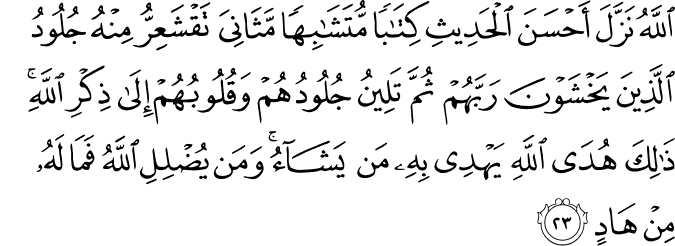 ٱللَّهُ نَزَّلَ أَحْسَنَ ٱلْحَدِيثِ كِتَٰبًا مُّتَشَٰبِهًا مَّثَانِىَ تَقْشَعِرُّ مِنْهُ جُلُودُ
ٱلَّذِينَ يَخْشَوْنَ رَبَّهُمْ ثُمَّ تَلِينُ جُلُودُهُمْ وَقُلُوبُهُمْ إِلَىٰ ذِكْرِ ٱللَّهِ ۚ
ذَٰلِكَ هُدَى ٱللَّهِ يَهْدِى بِهِۦ مَن يَشَآءُ ۚ وَمَن يُضْلِلِ ٱللَّهُ فَمَا لَهُۥ
مِنْ هَادٍ ٢٣